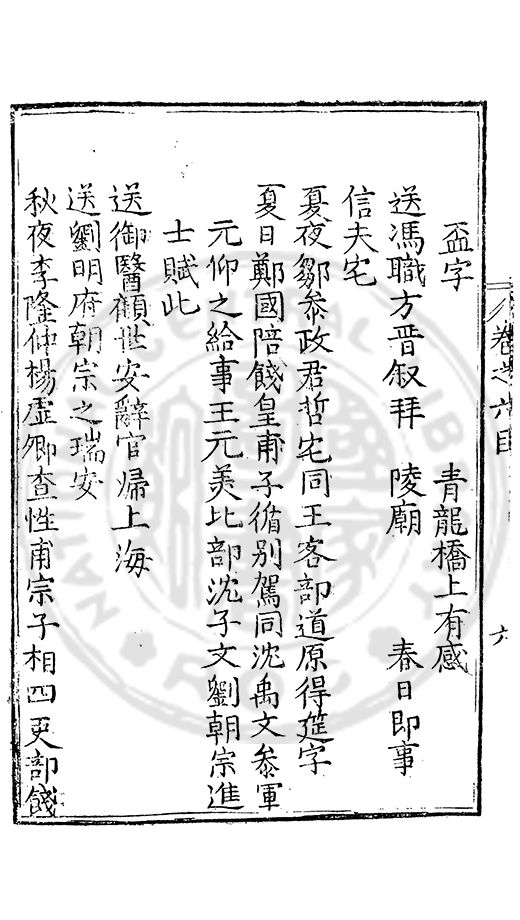 盃字　青龍橋上有感
送馮職方晋叔拜　陵廟　春日即事
信夫宅
夏夜鄒叅政君哲宅同王客部道原得筵字
夏日鄭國陪餞皇甫子循别駕同沈禹文叅軍
元仰之給事王元美比部沈子文劉朝宗進
士賦此
送御醫顧世安辭官歸上海
送劉明府朝宗之瑞安
秋夜李隆仲楊虛卿查性甫宗子相四吏部餞
卷之六目
六